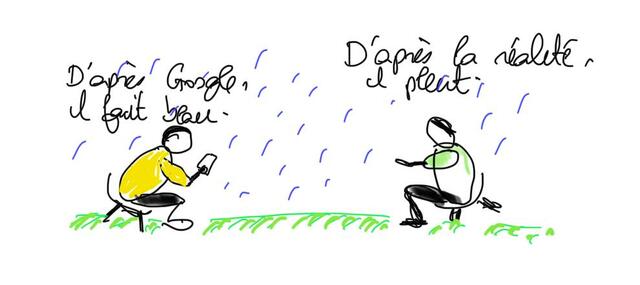 D'après Google,
il fait beau.
D'après la réalité,
il pleut.